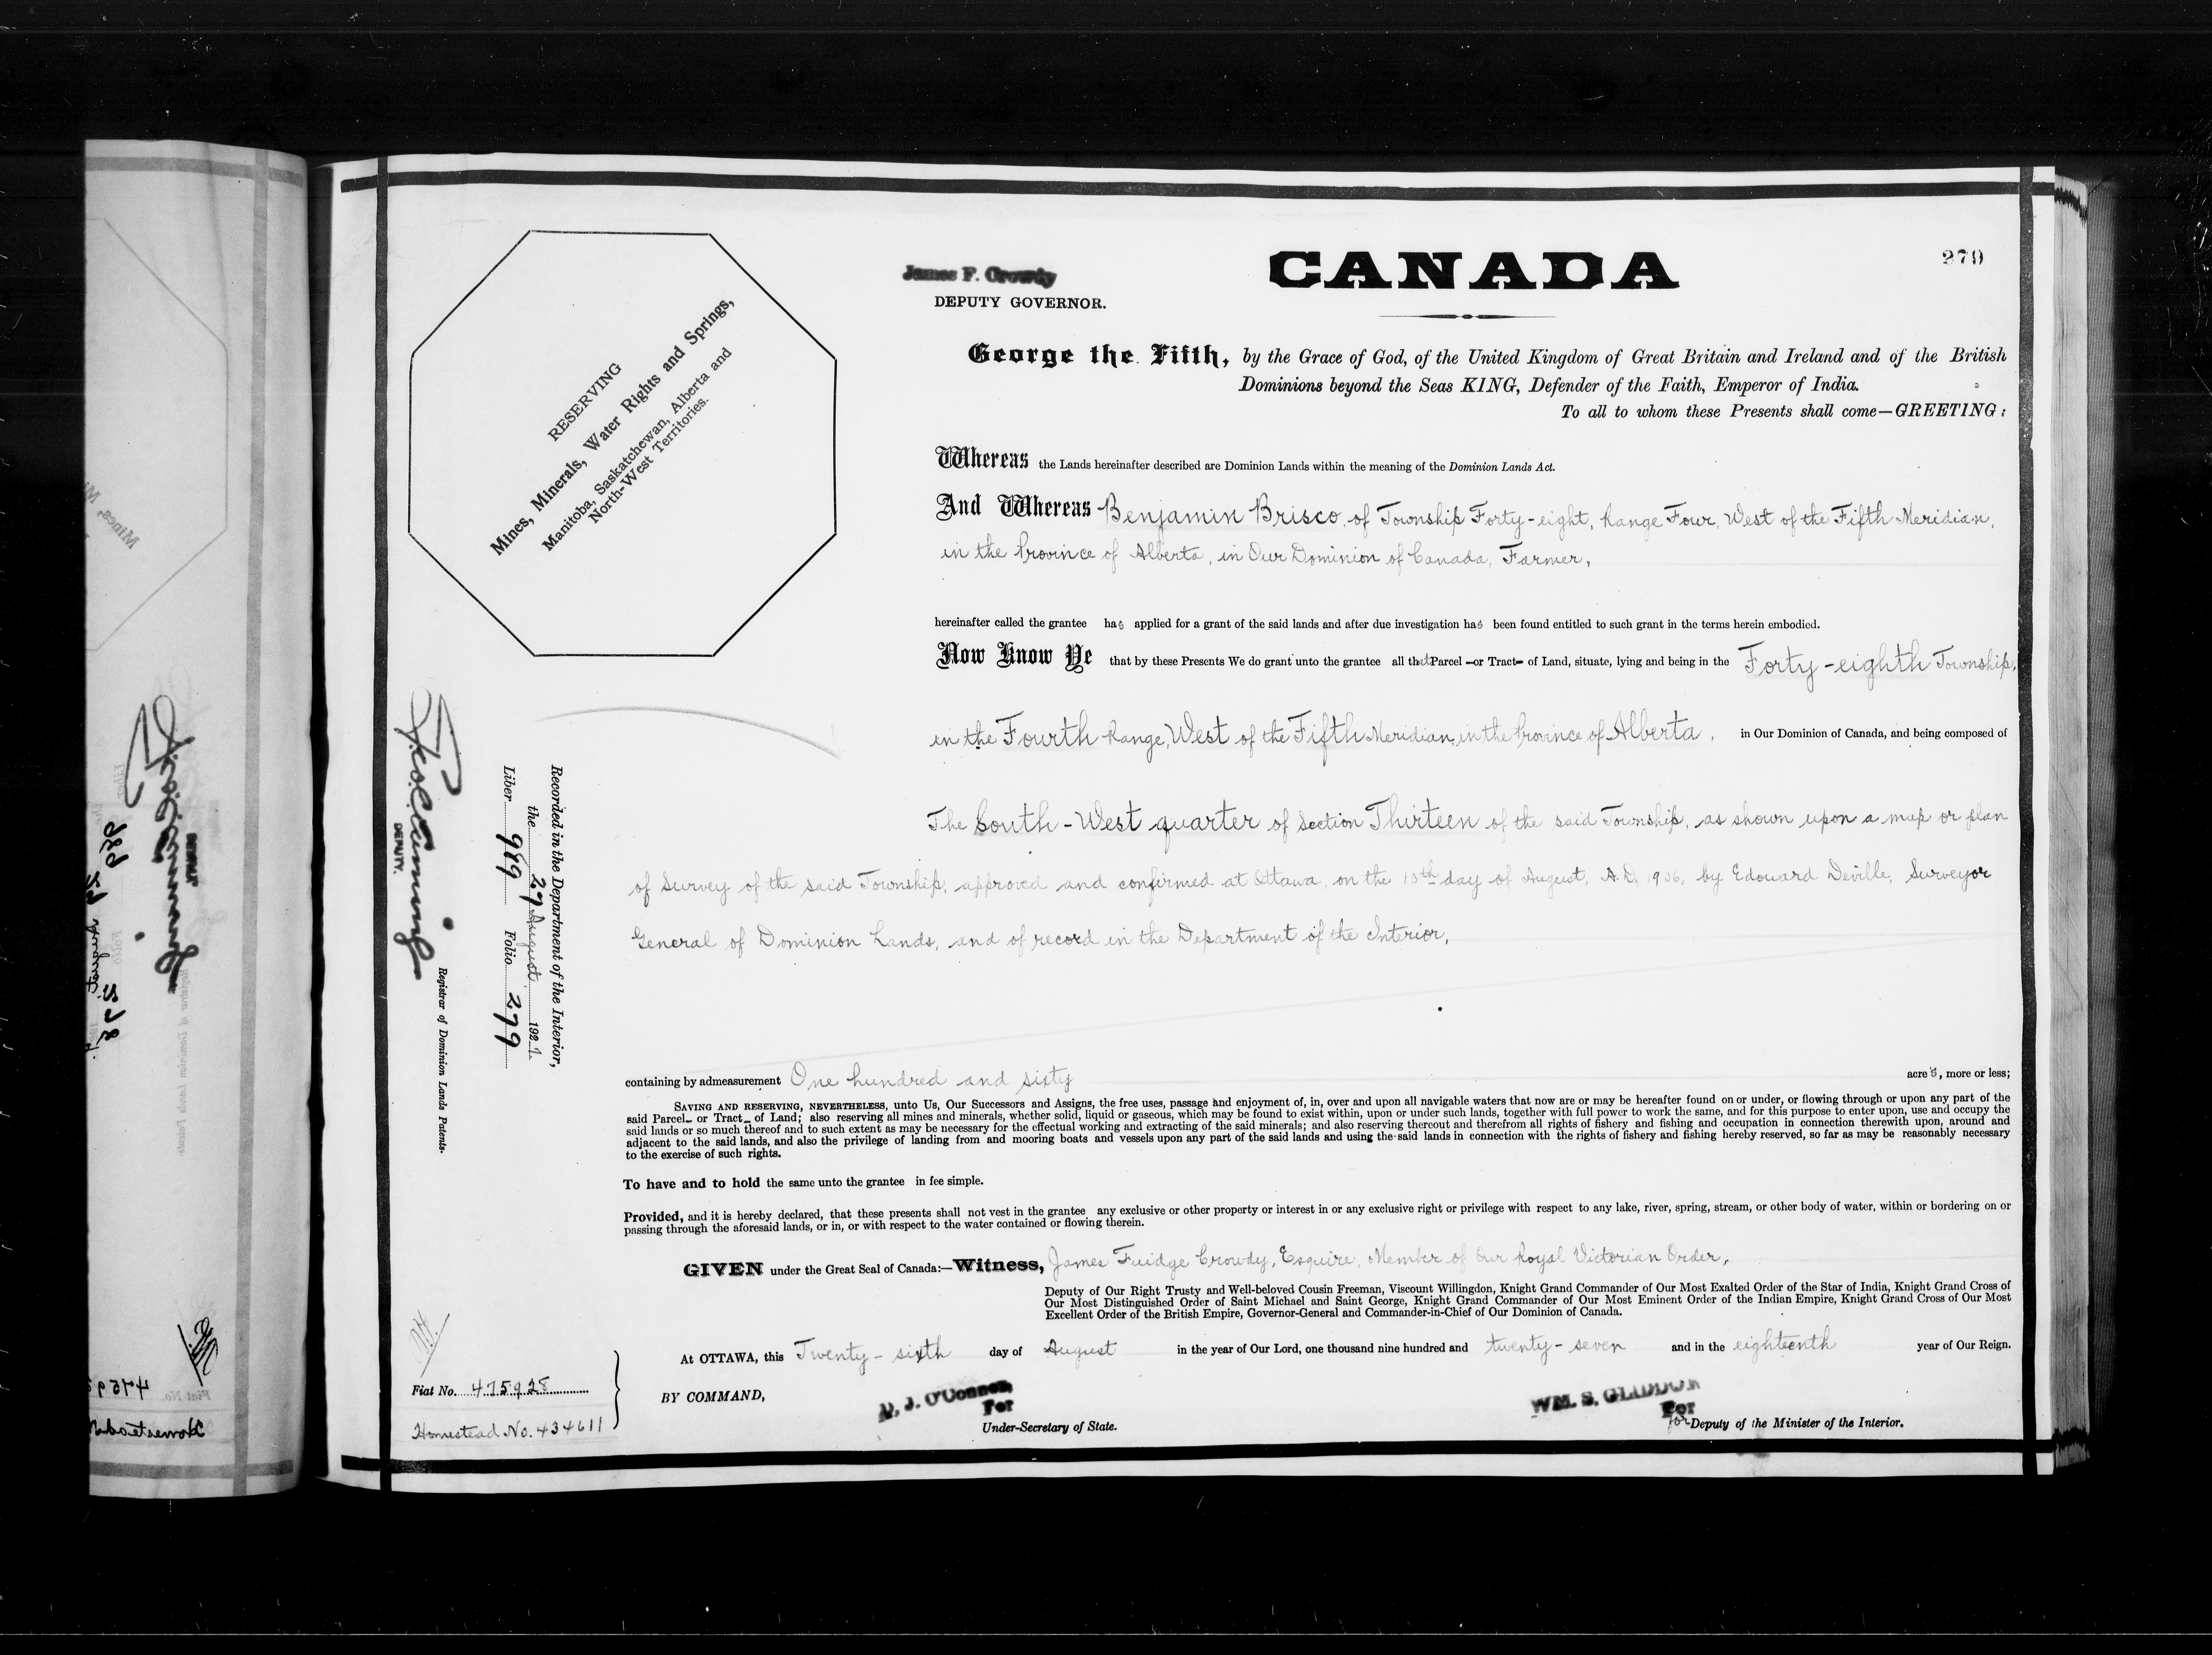 James F. Crowdy
DEPUTY GOVERNOR.
CANADA
279
George the Fifth, by the Grace of God, of the United Kingdom of Great Britain and Ireland and of the British
Dominions beyond the Seas KING, Defender of the Faith, Emperor of India.
To all to whom these Presents shall come—GREETING:
RESERVING
Mines, Minerals, Water Rights and Springs,
Manitoba, Saskatchewan, Alberta and
North-West Territories.
Whereas the Lands hereinafter described are Dominion Lands within the meaning of the Dominion Lands Act.
And Whereas Benjamin Brisco, of Township Forty-eight, Range Four, West of the Fifth Meridian,
in the Province of Alberta, in Our Dominion of Canada, Farmer,
hereinafter called the grantee has applied for a grant of the said lands and after due investigation has been found entitled to such grant in the terms herein embodied.
Now Know Ye that by these Presents We do grant unto the grantee all that Parcel or Tract of Land, situate, lying and being in the Forty-eighth Township,
in the Fourth Range, West of the Fifth Meridian, in the Province of Alberta, in Our Dominion of Canada, and being composed of
The South-West quarter of Section Thirteen of the said Township, as shown upon a map or plan
of Survey of the said Township, approved and confirmed at Ottawa, on the 10th day of August, A.D. 1906, by Edouard Deville, Surveyor
General of Dominion Lands, and of record in the Department of the Interior,
Recorded in the Department of the Interior,
the 27 August 1927.
Liber 989 Folio 279
DEPUTY.
Registrar of Dominion Lands Patents.
containing by admeasurement One hundred and sixty acres, more or less;
SAVING AND RESERVING, NEVERTHELESS, unto Us, Our Successors and Assigns, the free uses, passage and enjoyment of, in, over and upon all navigable waters that now are or may be hereafter found on or under, or flowing through or upon any part of the
said Parcel or Tract of Land; also reserving all mines and minerals, whether solid, liquid or gaseous, which may be found to exist within, upon or under such lands, together with full power to work the same, and for this purpose to enter upon, use and occupy the
said lands or so much thereof and to such extent as may be necessary for the effectual working and extracting of the said minerals; and also reserving thereout and therefrom all rights of fishery and fishing and occupation in connection therewith upon, around and
adjacent to the said lands, and also the privilege of landing from and mooring boats and vessels upon any part of the said lands and using the said lands in connection with the rights of fishery and fishing hereby reserved, so far as may be reasonably necessary
to the exercise of such rights.
To have and to hold the same unto the grantee in fee simple.
Provided, and it is hereby declared, that these presents shall not vest in the grantee any exclusive or other property or interest in or any exclusive right or privilege with respect to any lake, river, spring, stream, or other body of water, within or bordering on or
passing through the aforesaid lands, or in, or with respect to the water contained or flowing therein.
GIVEN under the Great Seal of Canada:—Witness, James Fuidge Crowdy, Esquire, Member of Our Royal Victorian Order,
Deputy of Our Right Trusty and Well-beloved Cousin Freeman, Viscount Willingdon, Knight Grand Commander of Our Most Exalted Order of the Star of India, Knight Grand Cross of
Our Most Distinguished Order of Saint Michael and Saint George, Knight Grand Commander of Our Most Eminent Order of the Indian Empire, Knight Grand Cross of Our Most
Excellent Order of the British Empire, Governor-General and Commander-in-Chief of Our Dominion of Canada.
At OTTAWA, this Twenty-sixth day of August in the year of Our Lord, one thousand nine hundred and twenty-seven and in the eighteenth year of Our Reign.
Fiat No. 475928
Homestead No. 434611
BY COMMAND,
D. J. O'Connor,
For
Under-Secretary of State.
WM. S. GLIDDON
For
for Deputy of the Minister of the Interior.